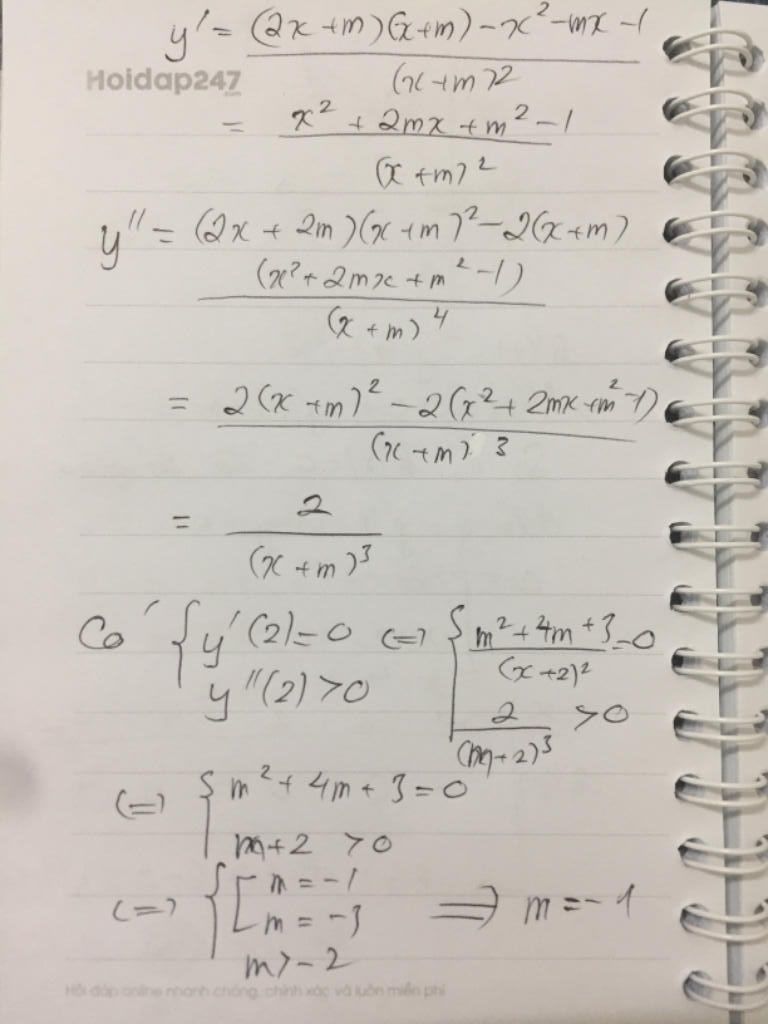 y' = (2x + m)(x + m) - x² - mx - 1
Hoidap247
.com
(x + m)²
= x² + 2mx + m² - 1
(x + m)²
y'' = (2x + 2m)(x + m)² - 2(x + m)
(x² + 2mx + m² - 1)
(x + m)⁴
= 2(x + m)² - 2(x² + 2mx + m² - 1)
(x + m)³
= 2
(x + m)³
Có { y'(2) = 0 (=) { m² + 4m + 3 = 0
(x + 2)²
y''(2) > 0
2 > 0
(m + 2)³
(=) { m² + 4m + 3 = 0
m + 2 > 0
(=) { [ m = -1
m = -3 => m = -1
m > -2
Hỏi đáp online nhanh chóng, chính xác và luôn miễn phí